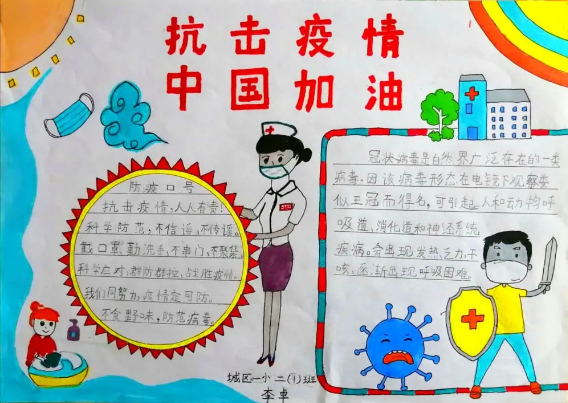 抗击疫情
中国加油
防疫口号
抗击疫情,人人有责!
科学防范,不信谣,不传谣。
戴口罩,勤洗手,不串门,不聚集。
科学应对,群防群控,战胜疫情。
我们同努力,疫情定可防。
不食野味,防范病毒。
冠状病毒是自然界广泛存在的一类
病毒。因该病毒形态在电镜下观察类
似王冠而得名,可引起人和动物呼
吸道、消化道和神经系统
疾病。会出现发热、乏力、干
咳、逐渐出现呼吸困难。
城区一小 二(1)班
李卓